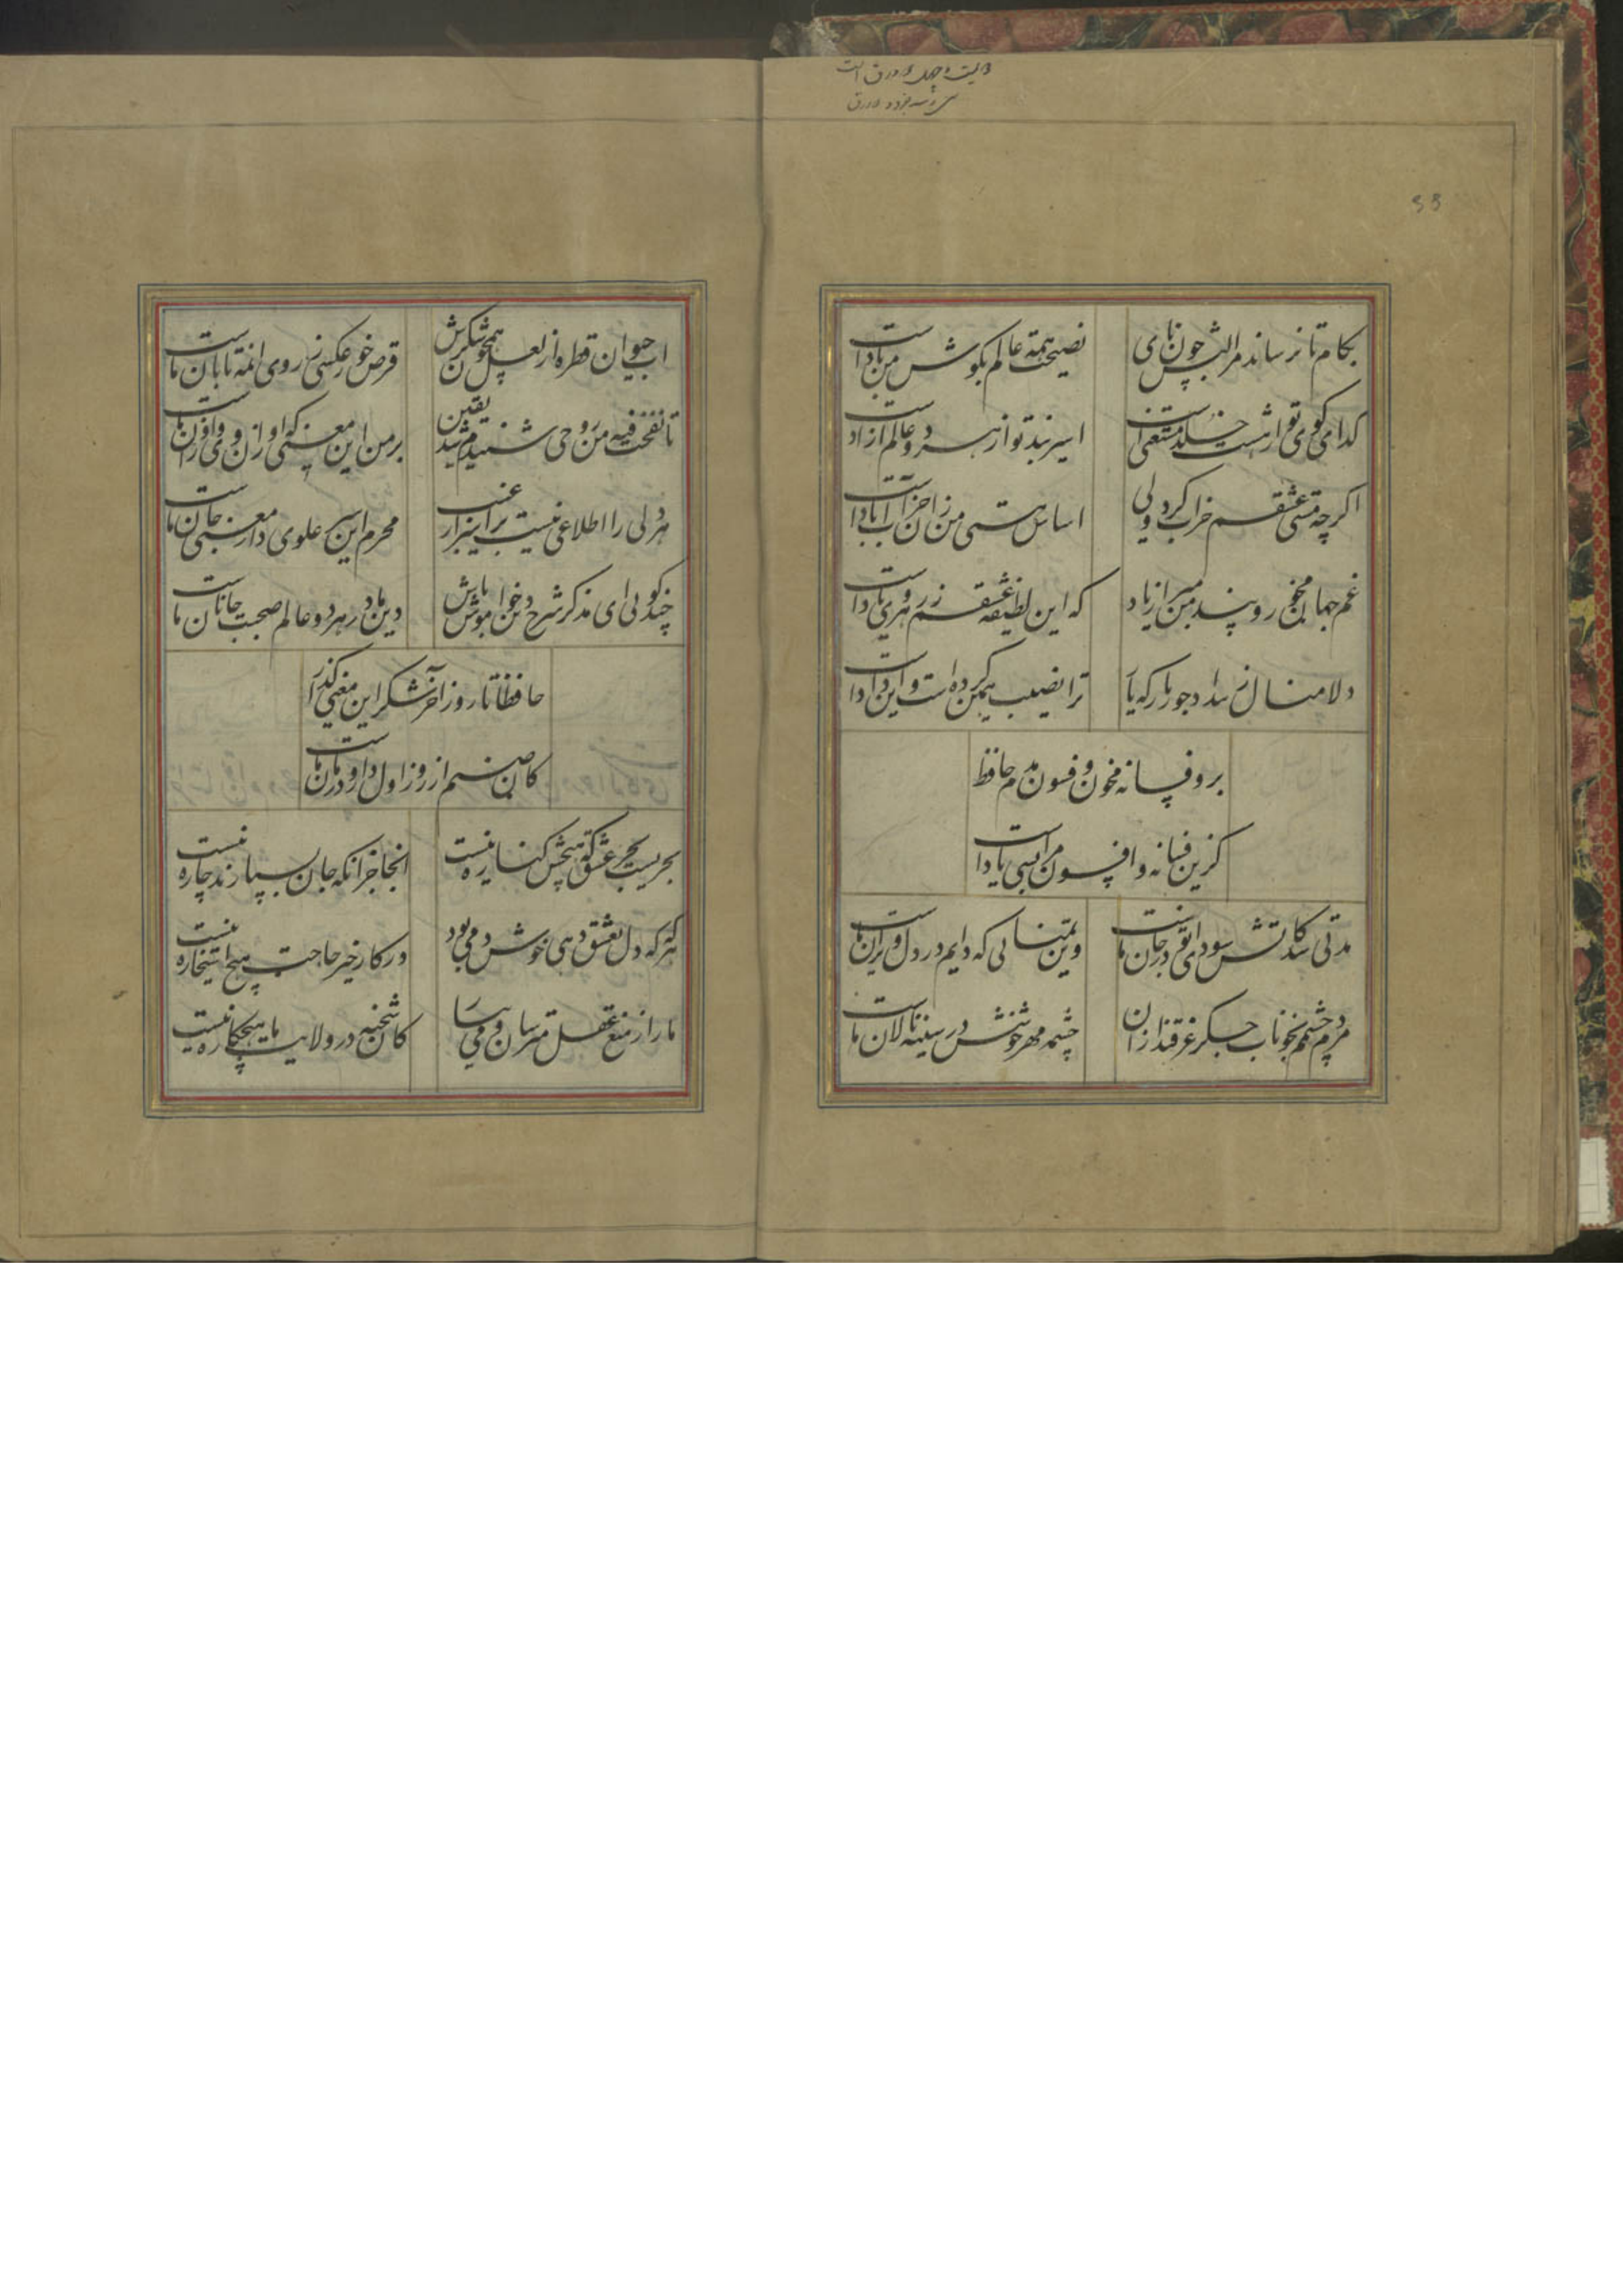 بکام تا نرساند مرا لبش چون نای نصیحت همه عالم بکوش من بادست
کدای کوی تو از هشت خلد مستغنی است اسیر بند تو از هر دو عالم ازادست
اکرچه مستی عشقم خراب کرد ولی اساس هستی من زان خراب ابادست
غم جهان مخور و پند من مبر از یاد که این لطیفه عشقم ز ره روی یادست
دلا منال ز بیداد جور یار که یار ترا نصیب همین کرده است و این دادست
برو فسانه مخوان و فسون مدم حافظ
کزین فسانه و افسون مرا بسی یادست
مدتی شد کاتش سودای تو در جان ماست وین تمنایی که دایم در دل ویران ماست
مردم چشمم بخوناب جکر غرقند ازان چشمه مهر خوشش در سینه نالان ماست
اب حیوان قطره از لعل همچون شکرش قرص خور عکسی ز روی ان مه تابان ماست
تا نفخت فیه من روحی شنیدم شد یقین بر من این معنی که او از ان وی و وی زان ماست
هر دلی را اطلاعی نیست بر اسرار غیب محرم این سر علوی دار معنی جان ماست
چند کویی ای مذکر شرح دین خاموش باش دین ما در هر دو عالم صحبت جانان ماست
حافظا تا روز اخر شکر این معنی کذار
کان صنم از روز اول داو و درمان ماست
بحریست بحر عشق که هیچش کناره نیست انجا جز انکه جان بسپارند چاره نیست
هر که که دل بعشق دهی خوش دمی بود در کار خیر حاجت هیچ استخاره نیست
ما را ز منع عقل مترسان و می بیار کان شحنه در ولایت ما هیچکاره نیست